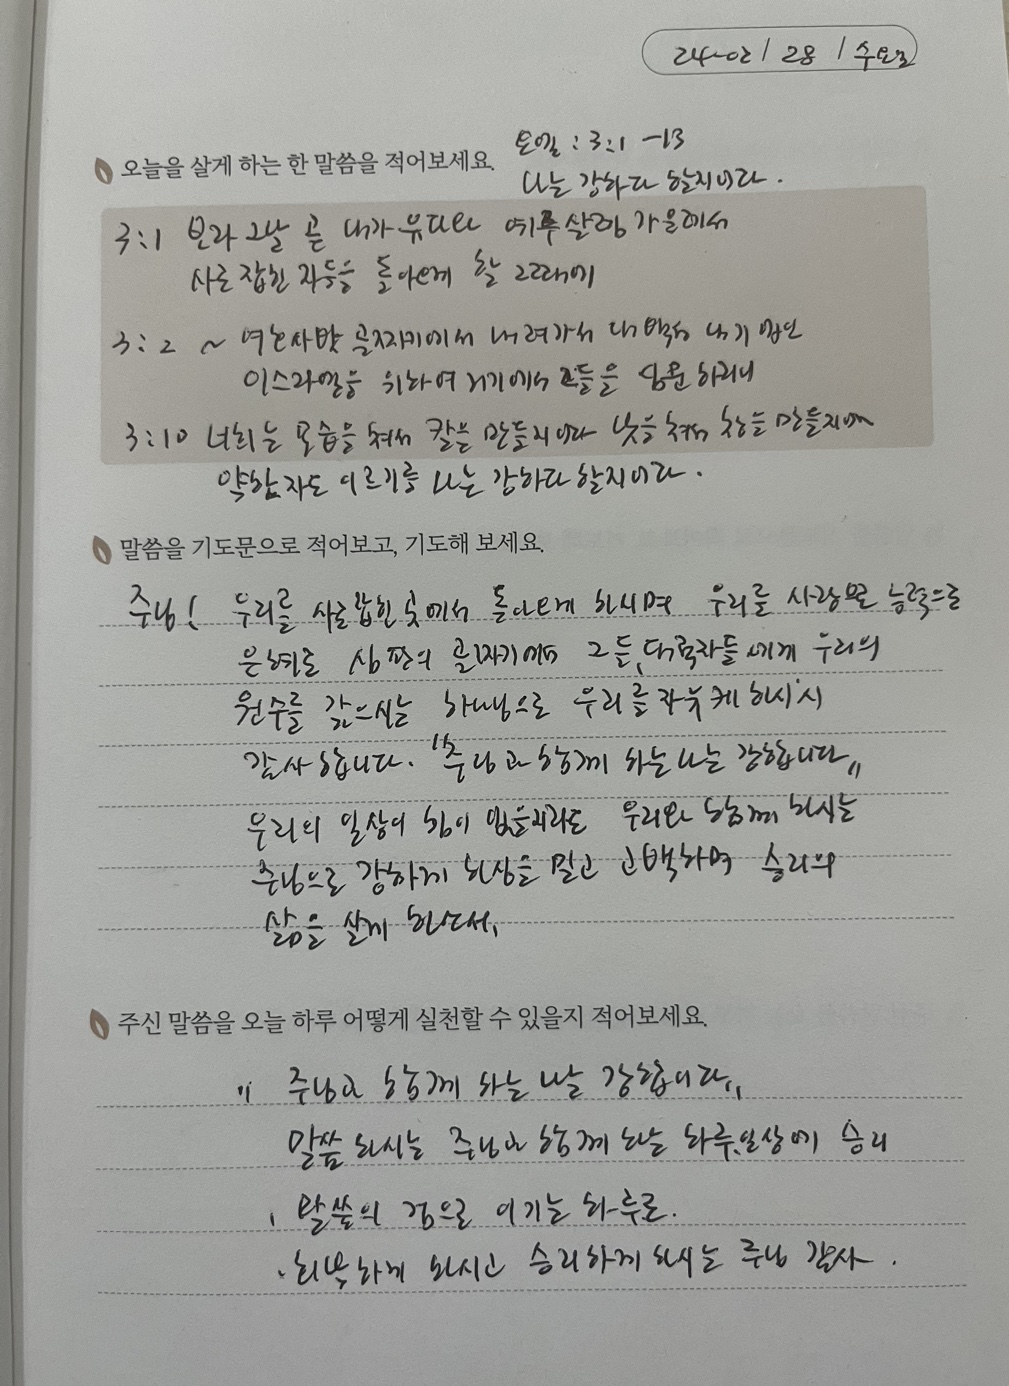 24-02 / 28 / 수요일
요엘 : 3:1 -13
오늘을 살게 하는 한 말씀을 적어보세요.
나는 강하다 할지이라.
3:1 보라 그날 곧 내가 유다와 예루살렘 가운데서
사로잡힌 자들을 돌아오게 할 그때에
3:2 ~ 여호사밧 골짜기에서 내려가서 내 백성 내 기업인
이스라엘을 위하여 거기에서 그들을 심문하리니
3:10 너희는 보습을 쳐서 칼을 만들지이다 낫을 쳐서 창을 만들지어다
약한 자도 이르기를 나는 강하다 할지이라.
말씀을 기도문으로 적어보고, 기도해 보세요.
주님! 우리를 사로잡힌 곳에서 돌아오게 하시며 우리를 사랑 능력으로
은혜로 심판의 골짜기에서 그들, 대적자들에게 우리의
원수를 갚으시는 하나님으로 우리를 하시니
감사합니다. "주님과 함께 하는 나는 강합니다"
우리의 일상이 힘이 없을지라도 우리와 함께 하시는
주님으로 강하게 하심을 믿고 고백하며 승리의
삶을 살게 하소서,
주신 말씀을 오늘 하루 어떻게 실천할 수 있을지 적어보세요.
" 주님과 함께 하는 나는 강합니다"
말씀 하시는 주님과 함께 하는 하루, 일상에 승리
, 말씀의 검으로 이기는 하루로.
. 회복하게 하시고 승리하게 하시는 주님 감사.